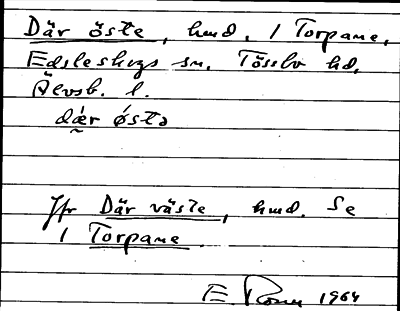 Där öste, hmd. 1 Torpane,
Edsleskogs sn. Tössbo hd,
Älvsb. l.
dǽr ǿstə
Jfr Där väste, hmd. Se
1 Torpane
E. 1964